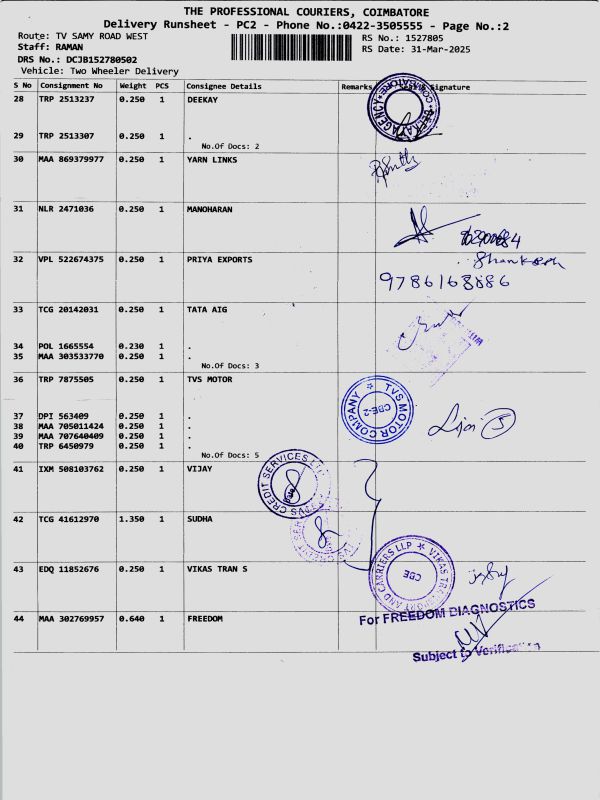 THE PROFESSIONAL COURIERS, COIMBATORE
Delivery Runsheet - PC2 - Phone No.:0422-3505555 - Page No.:2
Route: TV SAMY ROAD WEST
RS No.: 1527805
Staff: RAMAN
RS Date: 31-Mar-2025
DRS No.: DCJB152780502
Vehicle: Two Wheeler Delivery
S No Consignment No Weight PCS Consignee Details Remarks Signature
28 TRP 2513237 0.250 1 DEEKAY
29 TRP 2513307 0.250 1 .
No.Of Docs: 2
30 MAA 869379977 0.250 1 YARN LINKS
31 NLR 2471036 0.250 1 MANOHARAN
32 VPL 522674375 0.250 1 PRIYA EXPORTS
9786168886
33 TCG 20142031 0.250 1 TATA AIG
34 POL 1665554 0.230 1 .
35 MAA 303533770 0.250 1 .
No.Of Docs: 3
36 TRP 7875505 0.250 1 TVS MOTOR
TVS MOTOR COMPANY CBE-2
37 DPI 563409 0.250 1 .
38 MAA 705011424 0.250 1 .
39 MAA 707640409 0.250 1 .
40 TRP 6450979 0.250 1 .
No.Of Docs: 5
41 IXM 508103762 0.250 1 VIJAY
CREDIT SERVICES
42 TCG 41612970 1.350 1 SUDHA
43 EDQ 11852676 0.250 1 VIKAS TRAN S
CARRIERS LLP VIKAS CBE
44 MAA 302769957 0.640 1 FREEDOM
For FREEDOM DIAGNOSTICS
Subject to Verification